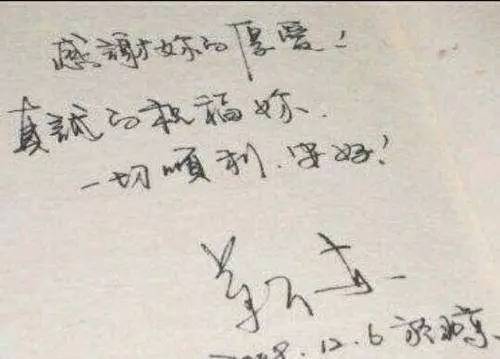 感謝妳的厚愛！
真誠的祝福妳．
一切順利．安好！
12.6 於北京